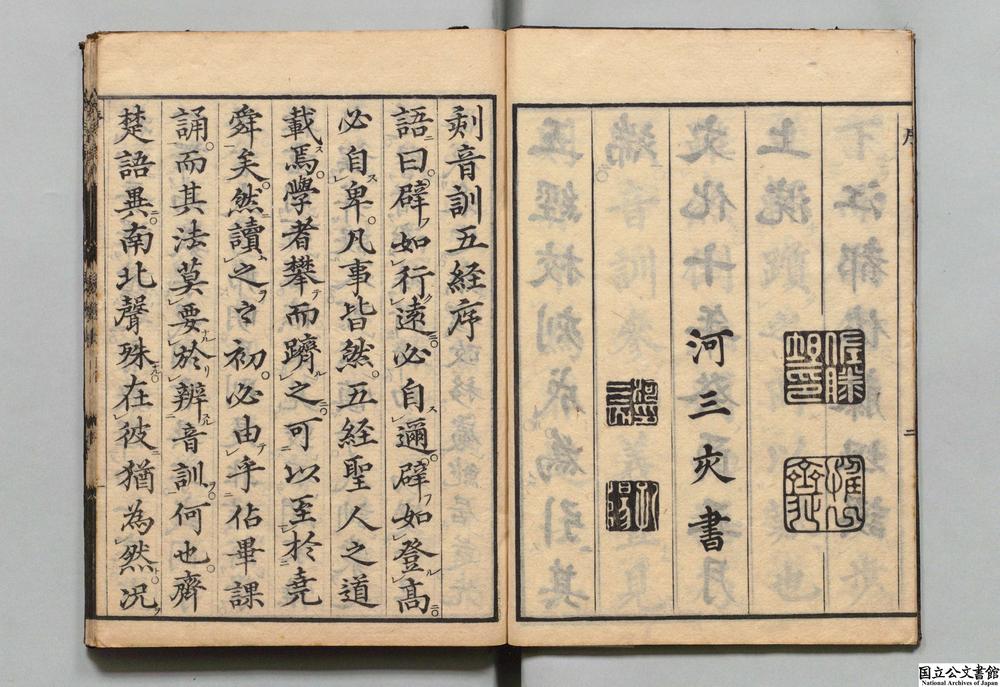 序
二
河三亥書
刻音訓五経序
語曰辟如行遠必自邇辟如登高
必自卑凡事皆然五経聖人之道
載焉學者攀而躋之可以至於堯
舜矣然讀之之初必由乎佔畢課
誦而其法莫要於辨音訓何也齊
楚語異南北聲殊在彼猶為然況
国立公文書館
National Archives of Japan